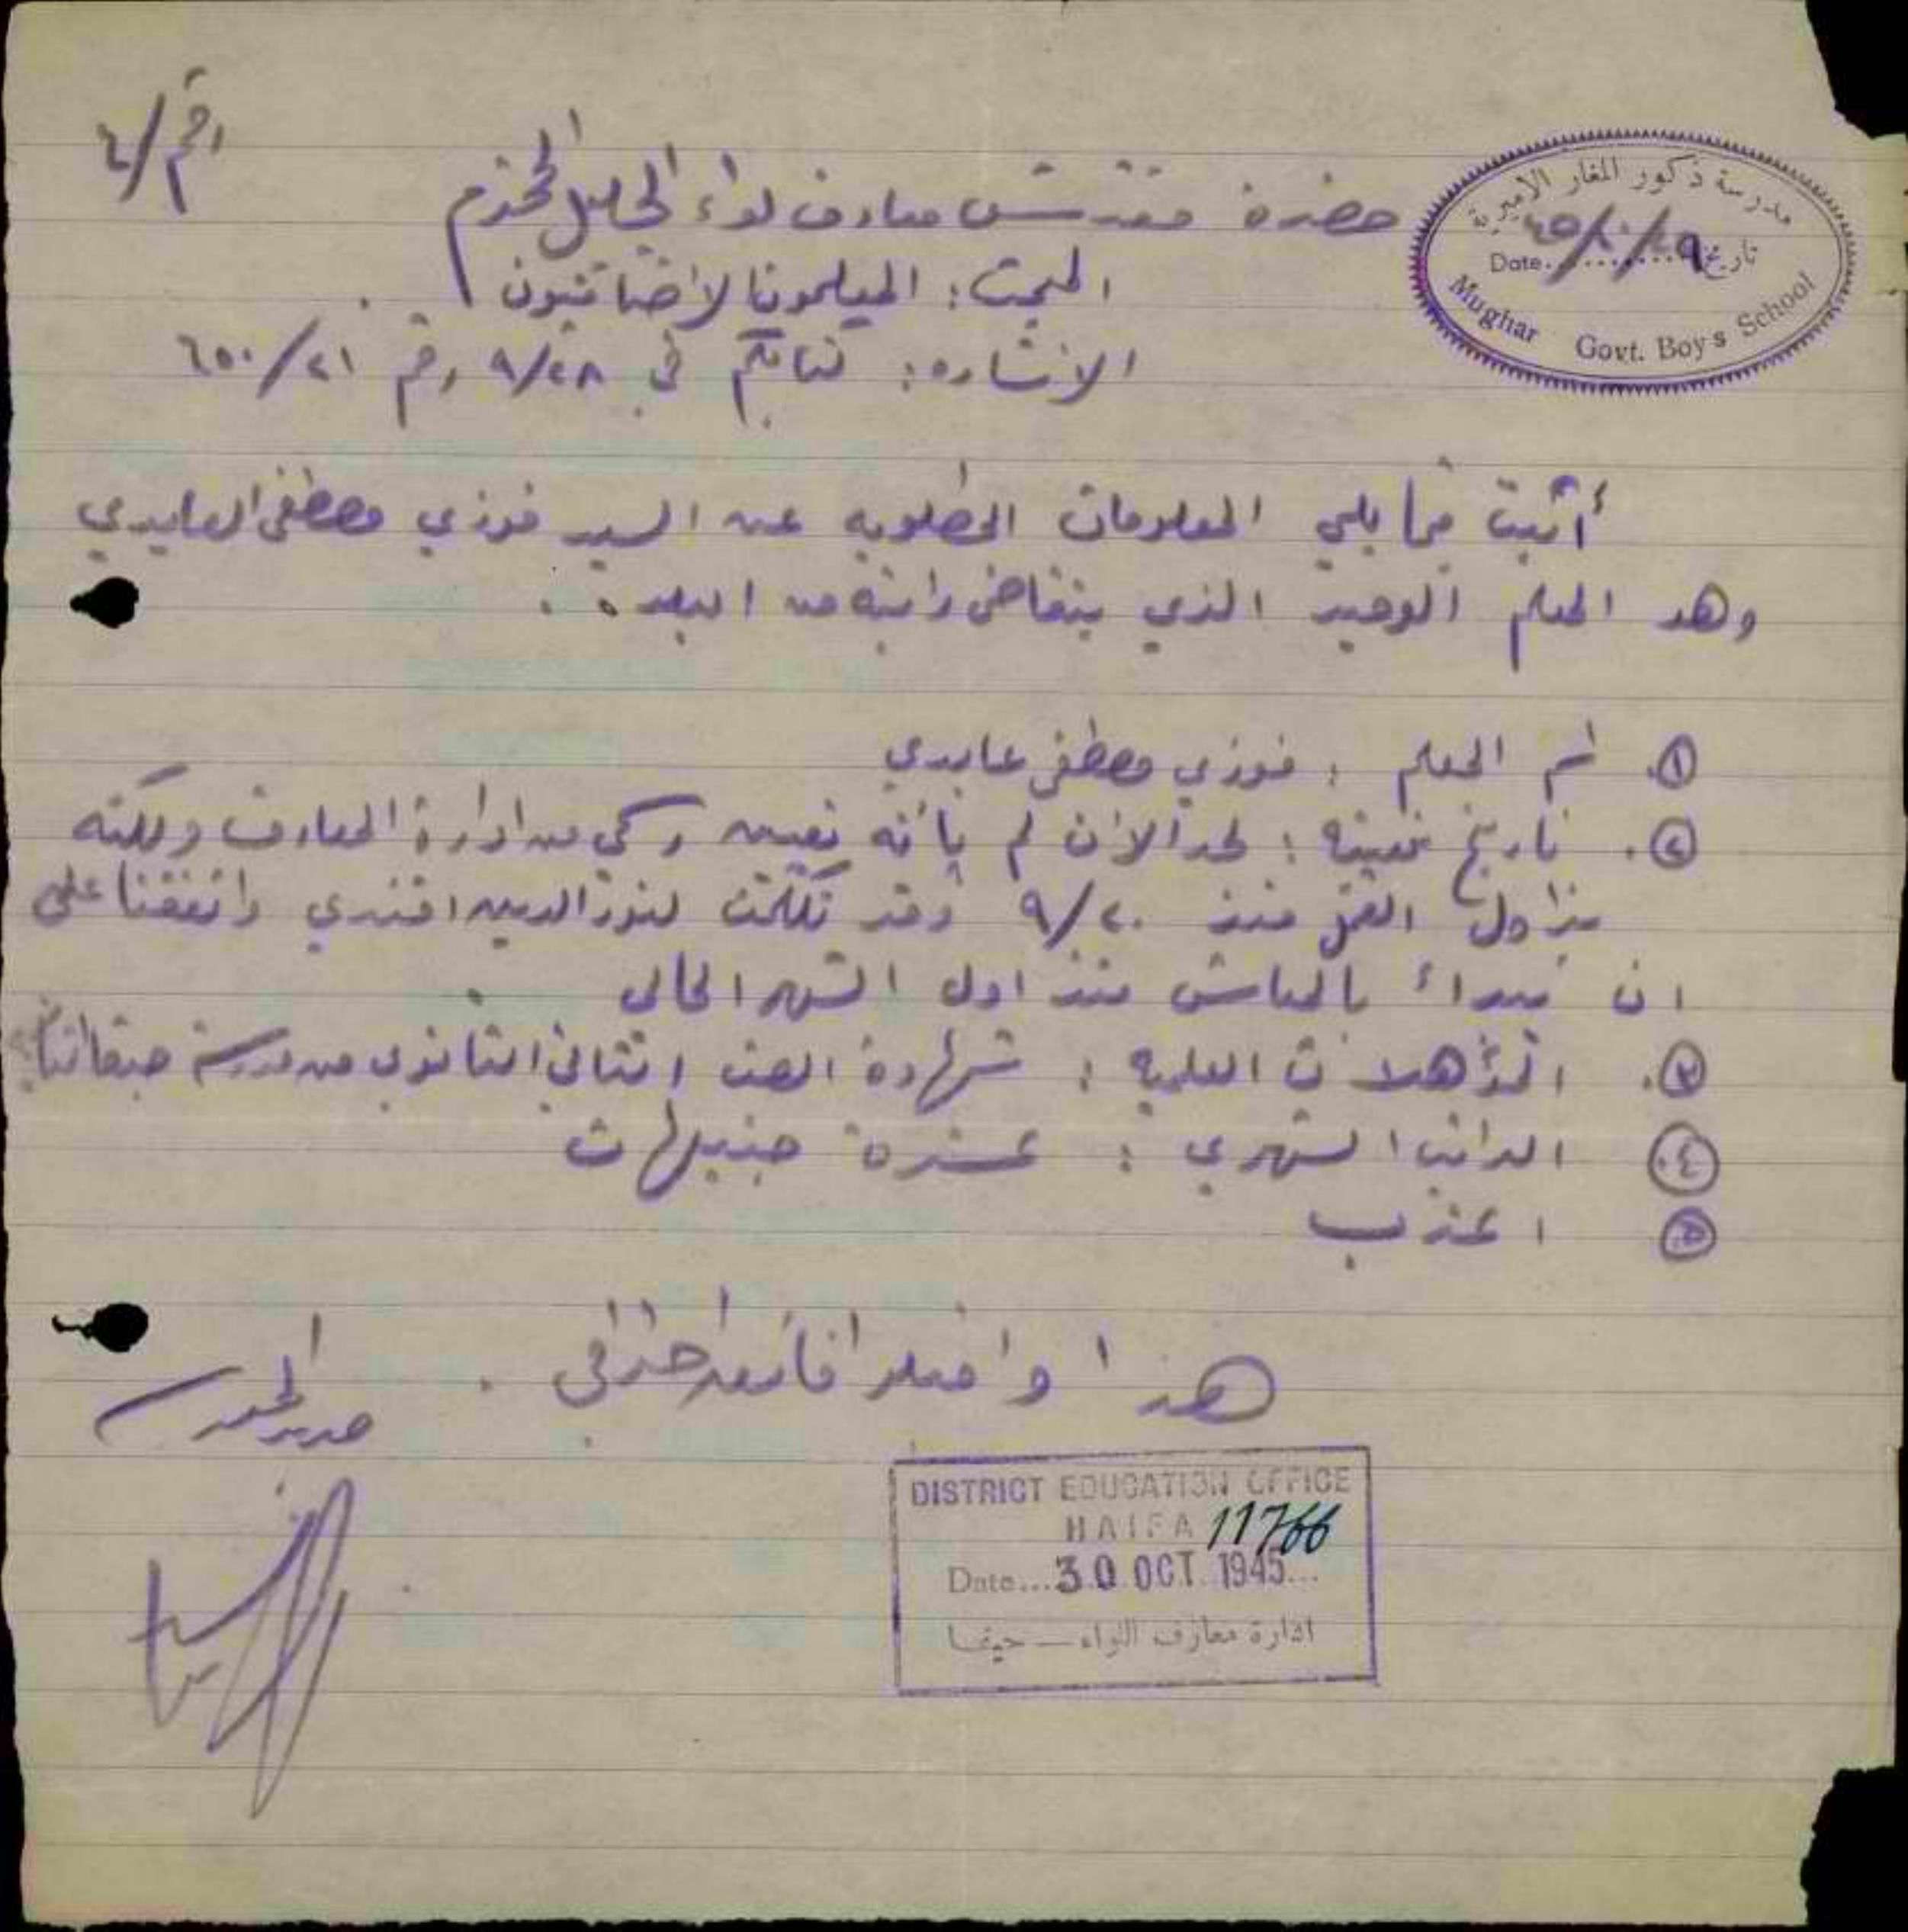 رقم /٤
مدرسة ذكور المغار الاميرية
تاريخ ٢٩/١٠/٤٥ Date
Mughar Govt. Boy's School
حضرة مفتش معارف لواء الجليل المحترم
المبحث: المعلمون الاضافيون
الاشاره: كتابكم في ٩/٢٨ رقم ٦٥٠/٢١
أثبت فيما يلي المعلومات المطلوبه عن السيد فوزي مصطفى العابدي
وهو المعلم الوحيد الذي يتقاضى راتبه من البلده .
١. اسم المعلم : فوزي مصطفى عابدي
٢. تاريخ تعيينه : لحد الآن لم يأته تعيين رسمي من ادارة المعارف ولكنه
يزاول العمل منذ ٩/٢٠ وقد تكلمت لنور الدين افندي واتفقنا على
ان نبدأ بالمعاش منذ اول الشهر الحالي .
٣. المؤهلات العلميه : شهادة الصف الثاني الثانوي من مدرسة
٤. الراتب الشهري : عشرة جنيهات
٥ اعزب
هذا واقبلوا فائق احترامي .
مدير المدرسة
DISTRICT EDUCATION OFFICE
HAIFA 11766
Date... 30 OCT. 1945...
ادارة معارف اللواء — حيفا